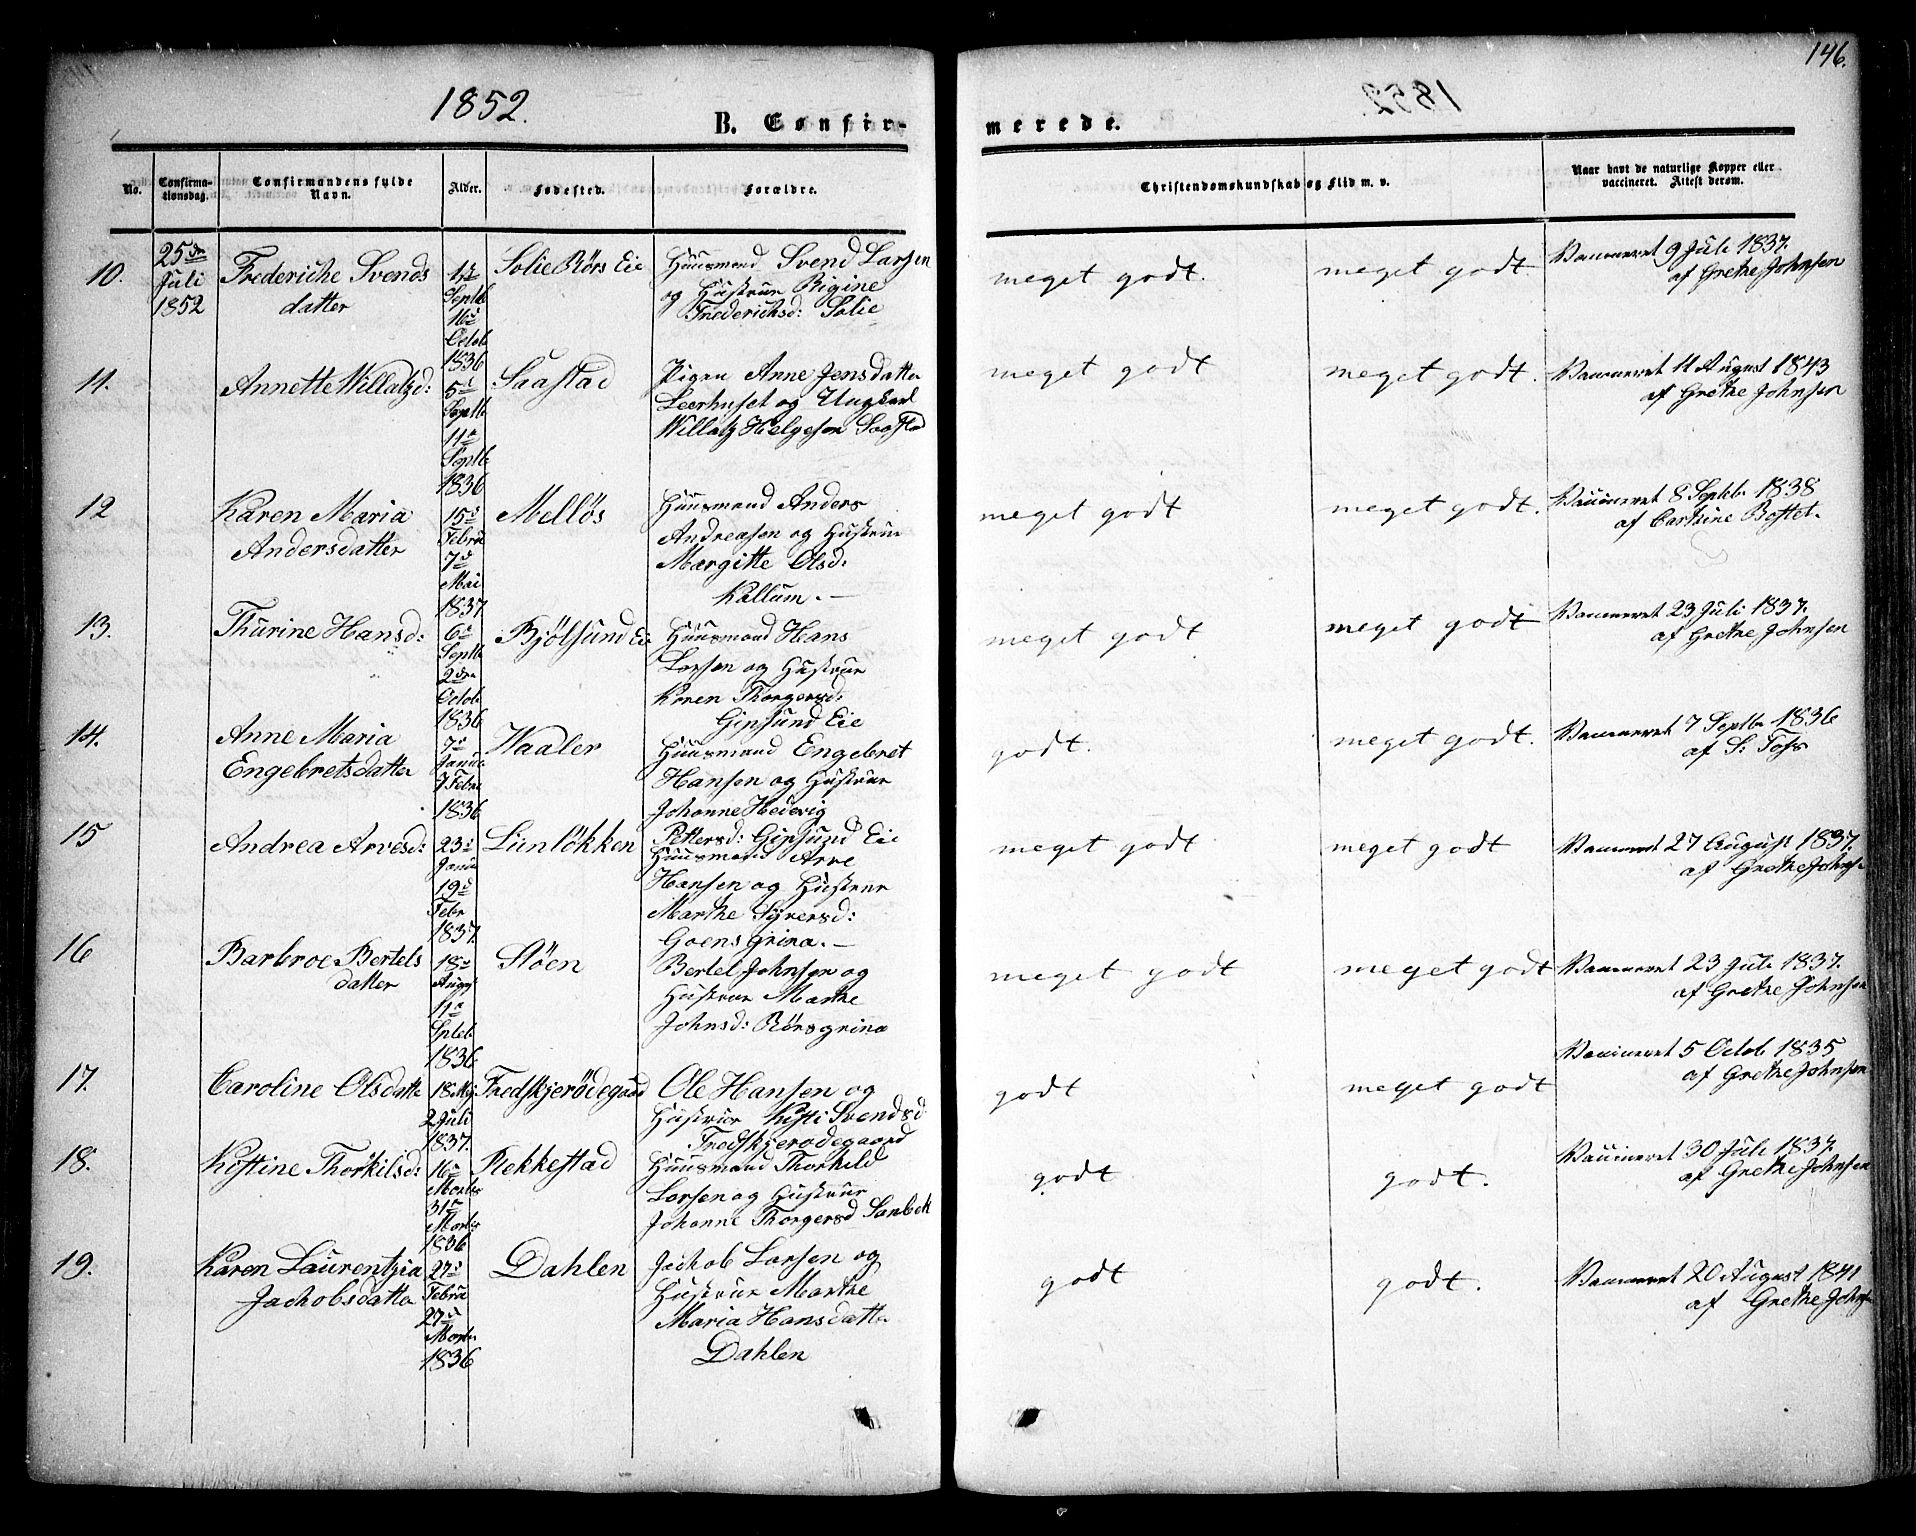 146.
1852.
B. Confir-
merede.
No.
Confirma-
tionsdag.
Confirmandens fulde
Navn.
Alder.
Fødested.
Forældre.
Christendomskundskab og Flid m. v.
Naar havt de naturlige Kopper eller
vaccineret. Attest derom.
10.
25de
Juli
1852
Frederiche Svends
datter
Septb
16d
Octob
1836
Solie Rørs Eie
Huusmand Svend Larsen
og Hustrue Rigine
Frederichsd: Solie
meget godt.
meget godt
Vaccineret 9 Juli 1837.
af Grethe Johnsen
11.
Annette Willatzd:
5d
Septb
11d
Septb
1836
Saastad
Pigen Anne Jensdatter
Leerhuset og Ungkarl
Willatz Helgesen Saastad
meget godt
meget godt.
Vaccineret 11 August 1843
af Grethe Johnsen
12
Karen Maria
Andersdatter
15d
Februa
7d
Mai
1837
Melløs
Huusmand Anders
Andreasen og Hustrue
Margitte Olsd:
Kallum. —
meget godt
meget godt.
Vaccineret 8 Septbr 1838
af
13.
Thurine Hansd:
6d
Septb
2den
Octob
1836
Bjølsund Eie
Huusmand Hans
Larsen og Hustrue
Karen Thorgersd:
Ginsund Eie
meget godt
meget godt
Vaccineret 23 Juli 1837.
af Grethe Johnsen
14.
Anne Maria
Engebretsdatter
7d
Janua
7 Febru
1836
Vaaler
Huusmand Engebret
Hansen og Hustrue
Johanne Hedevig
Pettersd: Ginsund Eie
godt.
meget godt.
Vaccineret 7 Septbr 1836
af S: Foss
15
Andrea Arvesd:
23d
Janua
19d
Febr
1837.
Lienløkken
Huusmand Arve
Hansen og Hustrue
Marthe Syversd:
Goensgrina. —
meget godt
meget godt
Vaccineret 27 August 1837.
af Grethe Johns-
16
Barbroe Bertels
datter
18d
Augs
11d
Spteb
1836
Støen
Bertel Johnsen og
Hustrue Marthe
Johnsd: Rørsgrina
meget godt
meget godt
Vaccineret 23 Juli 1837.
af Grethe Johnsen
17.
Caroline Olsdatter
18 Maj
2 Juli
1837.
Fredskjerødegaard
Ole Hansen og
Hustrue Kisti Svendsd
Fredskjerødegaard
godt
meget godt
Vaccineret 5 Octob 1835
af Grethe Johnsen
18.
Kistine Thorkilsd:
16d
Marts
31d
Marts
1836
Rekkestad
Huusmand Thorkild
Larsen og Hustrue
Johanne Thorgersd Sanbek
godt
godt.
Vaccineret 30 Juli 1837.
af Grethe Johnsen
19.
Karen Laurentzia
Jachobsdatter
27d
Februa
27d
Marts
1836
Dahlen
Jachob Larsen og
Hustrue Marthe
Maria Hansdatter
Dahlen
godt
godt.
Vaccineret 20 August 1841
af Grethe Johns-